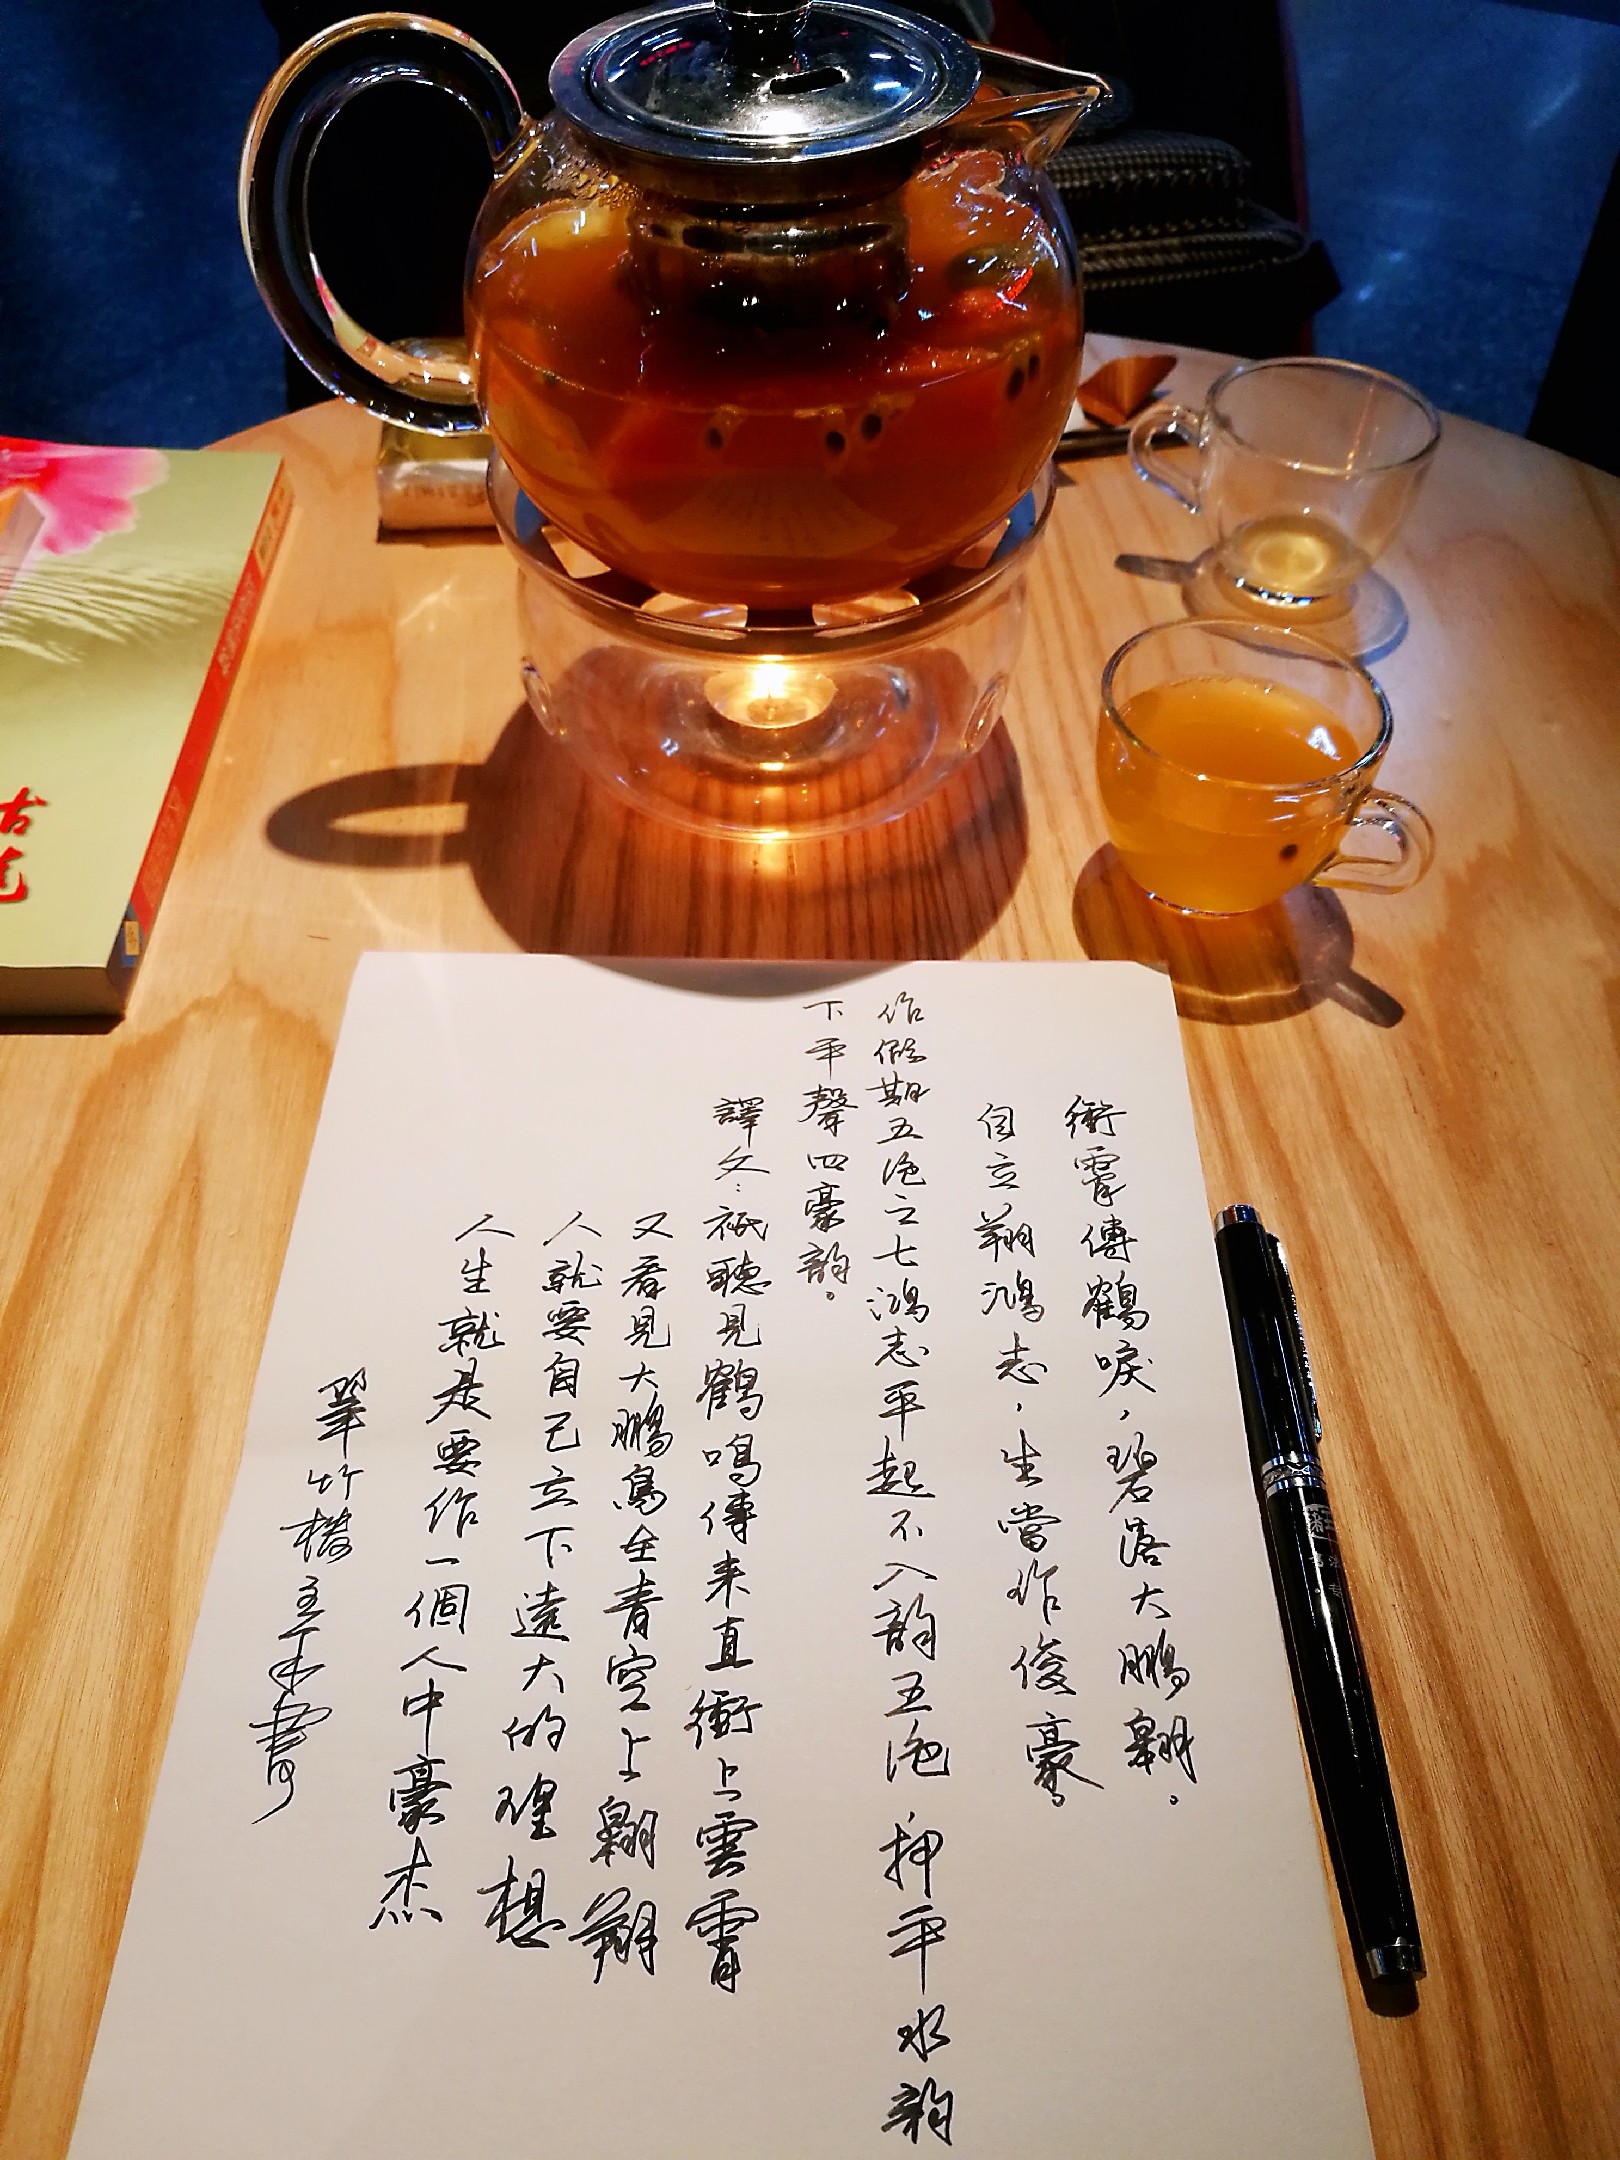 衝霄傳鶴唳，碧落大鵬翱。
自立翔鴻志，生當作俊豪。
作假期五绝之七鴻志平起不入韵五绝押平水韵
下平聲四豪韵。
譯文：祇聽見鶴鳴傳来直衝上雲霄
又看見大鵬鳥在青空上翱翔
人就要自己立下遠大的理想
人生就是要作一個人中豪杰
翠竹楼主
古